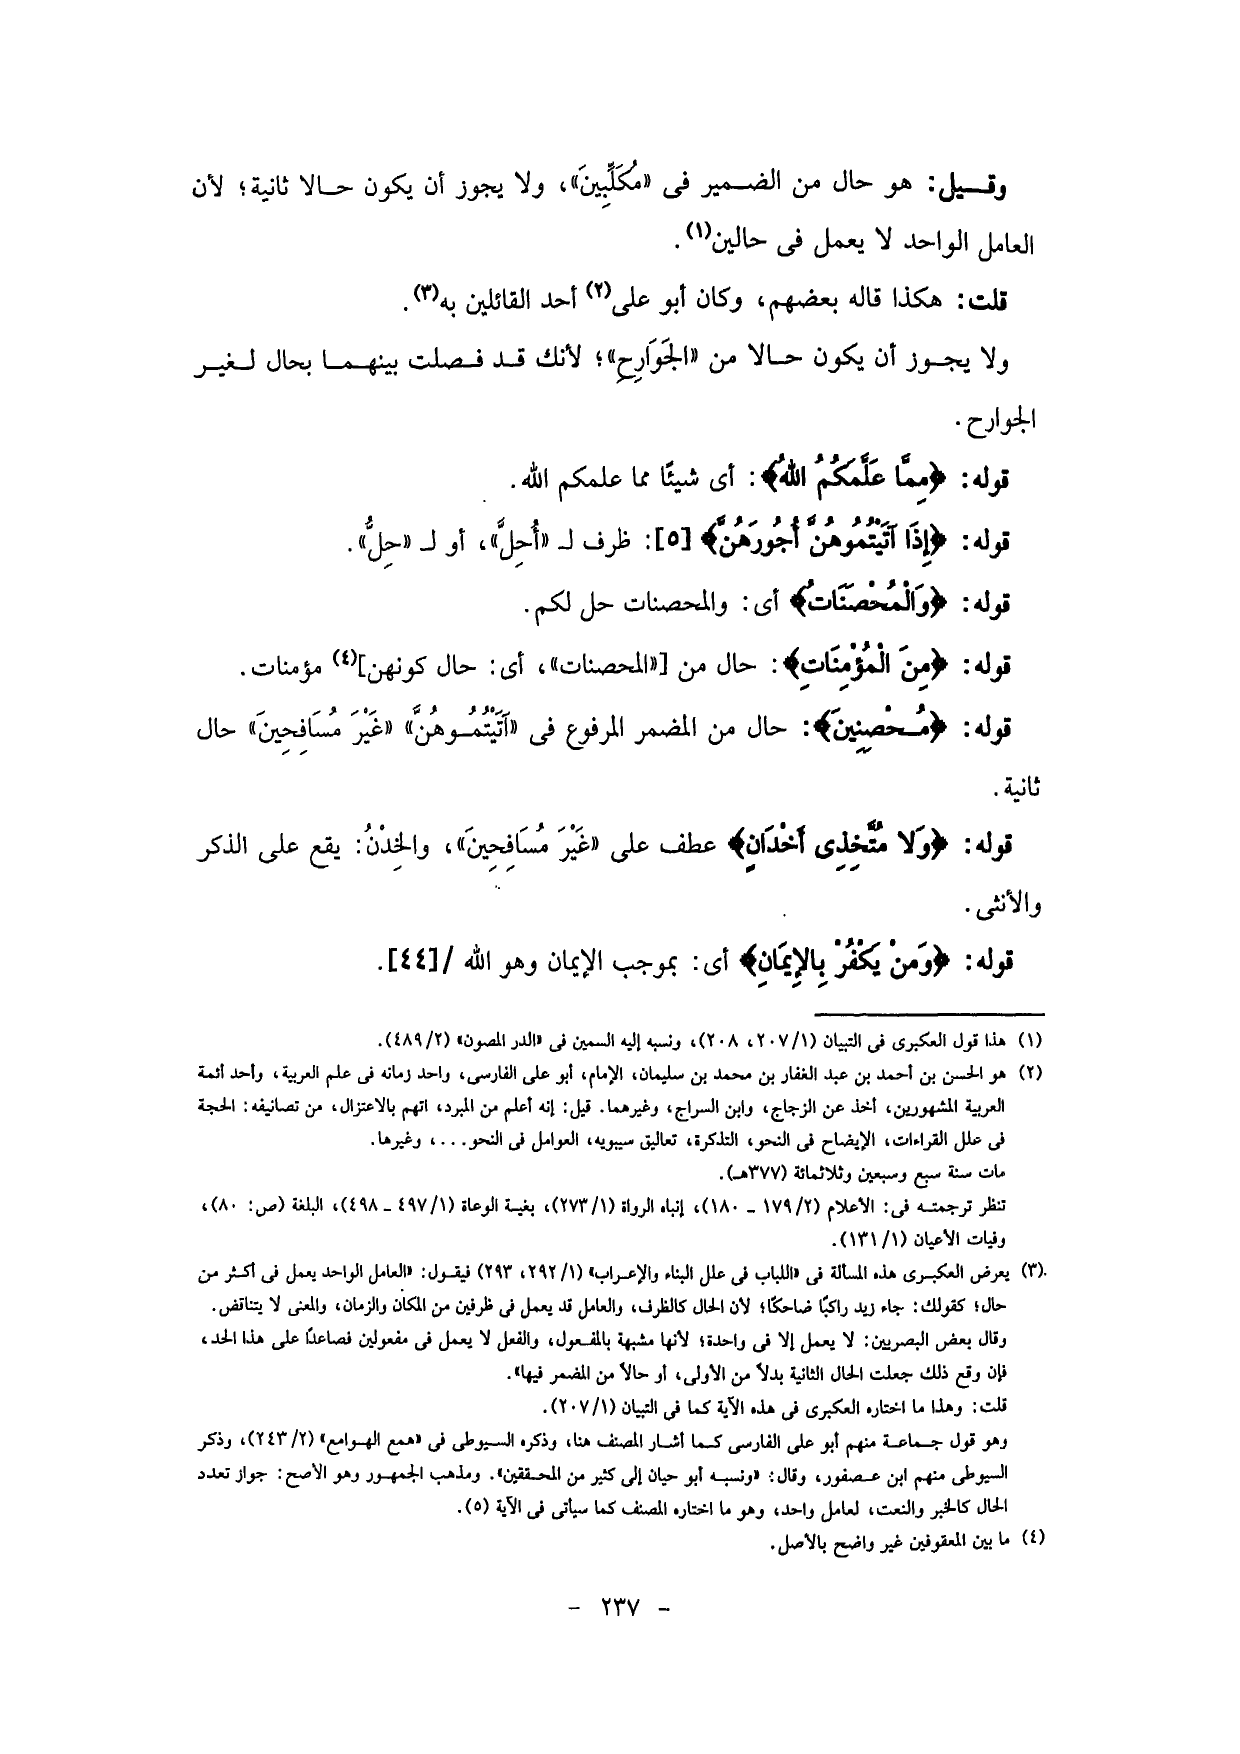 وقـــيل: هو حال من الضـمير فى «مُكَلِّبِينَ»، ولا يجوز أن يكون حـالا ثانية؛ لأن
العامل الواحد لا يعمل فى حالين(١).
قلت: هكذا قاله بعضهم، وكان أبو على(٢) أحد القائلين به(٣).
ولا يجـوز أن يكون حـالا من «الجَوَارِحِ»؛ لأنك قـد فـصلت بينهـمـا بحال لـغيـر
الجوارح.
قوله: ﴿مِمَّا عَلَّمَكُمُ اللهُ﴾: أى شيئًا مما علمكم الله.
قوله: ﴿إِذَا آتَيْتُمُوهُنَّ أُجُورَهُنَّ﴾ [٥]: ظرف لـ «أُحِلَّ»، أو لـ «حِلٌّ».
قوله: ﴿وَالْمُحْصَنَاتُ﴾ أى: والمحصنات حل لكم.
قوله: ﴿مِنَ الْمُؤْمِنَاتِ﴾: حال من [«المحصنات»، أى: حال كونهن](٤) مؤمنات.
قوله: ﴿مُـحْصِنِينَ﴾: حال من المضمر المرفوع فى «آتَيْتُمُـوهُنَّ» «غَيْرَ مُسَافِحِينَ» حال
ثانية.
قوله: ﴿وَلَا مُتَّخِذِى أَخْدَانٍ﴾ عطف على «غَيْرَ مُسَافِحِينَ»، والخِدْنُ: يقع على الذكر
والأنثى.
قوله: ﴿وَمَنْ يَكْفُرْ بِالإِيمَانِ﴾ أى: بموجب الإيمان وهو الله /[٤٤].
(١) هذا قول العكبرى فى التبيان (١/ ٢٠٧، ٢٠٨)، ونسبه إليه السمين فى «الدر المصون» (٢/ ٤٨٩).
(٢) هو الحسن بن أحمد بن عبد الغفار بن محمد بن سليمان، الإمام، أبو على الفارسى، واحد زمانه فى علم العربية، وأحد أئمة
العربية المشهورين، أخذ عن الزجاج، وابن السراج، وغيرهما. قيل: إنه أعلم من المبرد، اتهم بالاعتزال، من تصانيفه: الحجة
فى علل القراءات، الإيضاح فى النحو، التذكرة، تعاليق سيبويه، العوامل فى النحو...، وغيرها.
مات سنة سبع وسبعين وثلاثمائة (٣٧٧هـ).
تنظر ترجمتـه فى: الأعلام (٢/ ١٧٩ ـ ١٨٠)، إنباه الرواة (١/ ٢٧٣)، بغيـة الوعاة (١/ ٤٩٧ ـ ٤٩٨)، البلغة (ص: ٨٠)،
وفيات الأعيان (١/ ١٣١).
(٣) يعرض العكبـرى هذه المسألة فى «اللباب فى علل البناء والإعـراب» (١/ ٢٩٢، ٢٩٣) فيقـول: «العامل الواحد يعمل فى أكثر من
حال؛ كقولك: جاء زيد راكبًا ضاحكًا؛ لأن الحال كالظرف، والعامل قد يعمل فى ظرفين من المكان والزمان، والمعنى لا يتناقض.
وقال بعض البصريين: لا يعمل إلا فى واحدة؛ لأنها مشبهة بالمفـعول، والفعل لا يعمل فى مفعولين فصاعدًا على هذا الحد،
فإن وقع ذلك جعلت الحال الثانية بدلاً من الأولى، أو حالاً من المضمر فيها».
قلت: وهذا ما اختاره العكبرى فى هذه الآية كما فى التبيان (١/ ٢٠٧).
وهو قول جـماعـة منهم أبو على الفارسى كـما أشـار المصنف هنا، وذكره السـيوطى فى «همع الهـوامع» (٢/ ٢٤٣)، وذكر
السيوطى منهم ابن عـصفور، وقال: «ونسبـه أبو حيان إلى كثير من المحـققين». ومذهب الجمهـور وهو الأصح: جواز تعدد
الحال كالخبر والنعت، لعامل واحد، وهو ما اختاره المصنف كما سيأتى فى الآية (٥).
(٤) ما بين المعقوفين غير واضح بالأصل.
- ٢٣٧ -